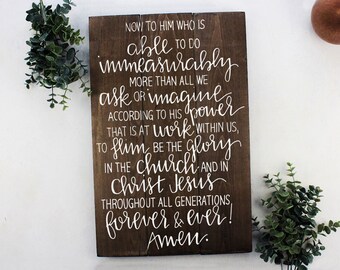 NOW TO HIM WHO IS
able TO DO
immeasurably
MORE THAN ALL WE
ask OR imagine,
ACCORDING TO HIS power
THAT IS AT work WITHIN US,
TO Him BE THE glory
IN THE church AND IN
Christ Jesus
THROUGHOUT ALL GENERATIONS,
forever & ever!
Amen.